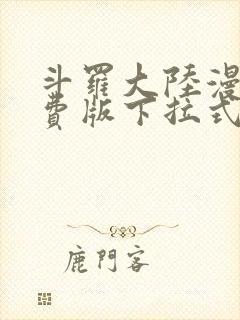 斗羅大陸漫
費版下拉式
鹿門客